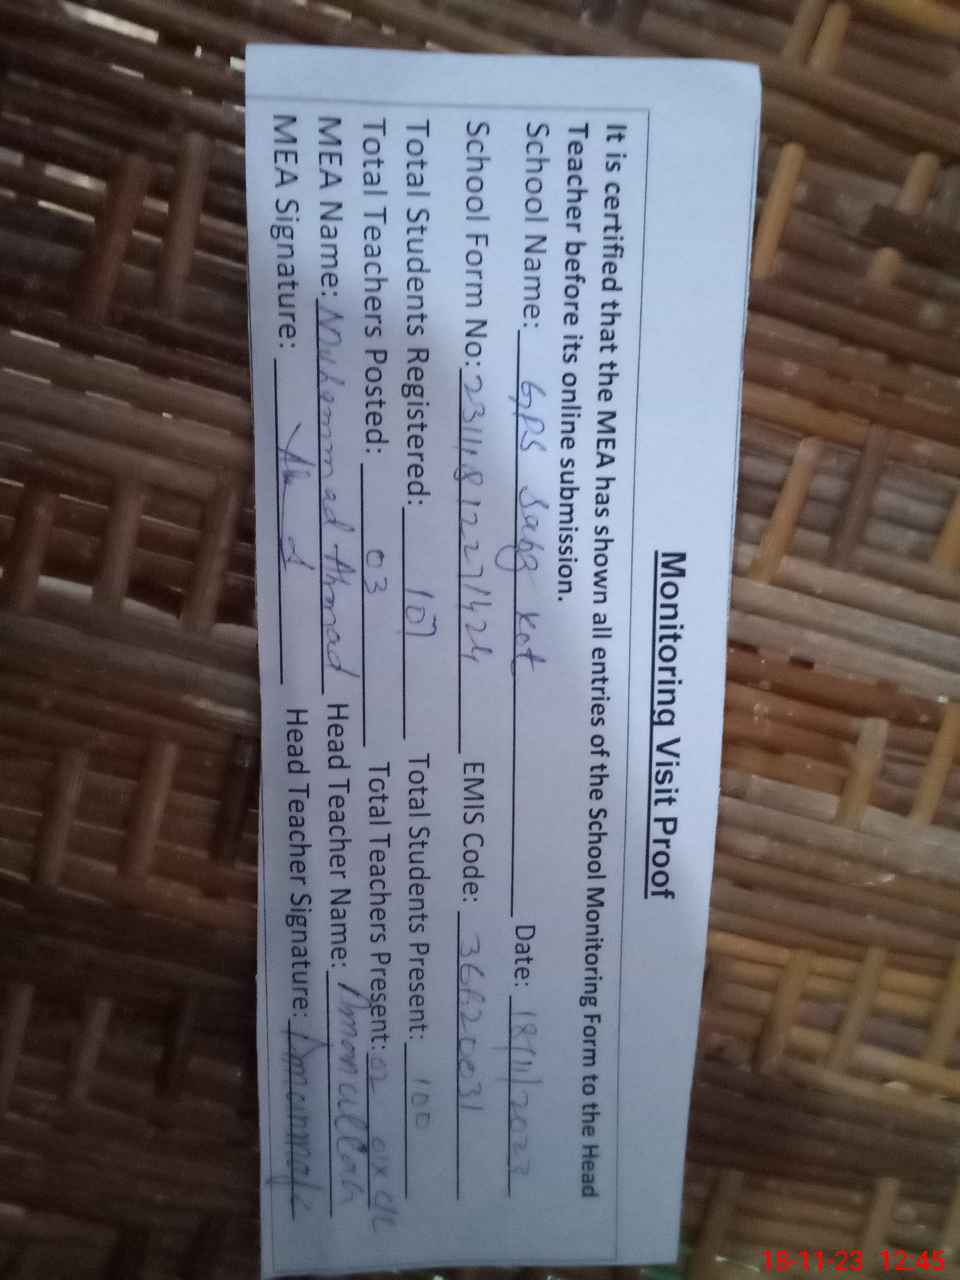 Monitoring Visit Proof
It is certified that the MEA has shown all entries of the School Monitoring Form to the Head
Teacher before its online submission.
School Name: GPS Kot Date: 18/11/2023
School Form No: EMIS Code:
Total Students Registered: 107 Total Students Present: 100
Total Teachers Posted: 03 Total Teachers Present: 02
MEA Name: Muhammad Ahmad Head Teacher Name: Amanullah
MEA Signature: Head Teacher Signature:
18-11-23 12:45